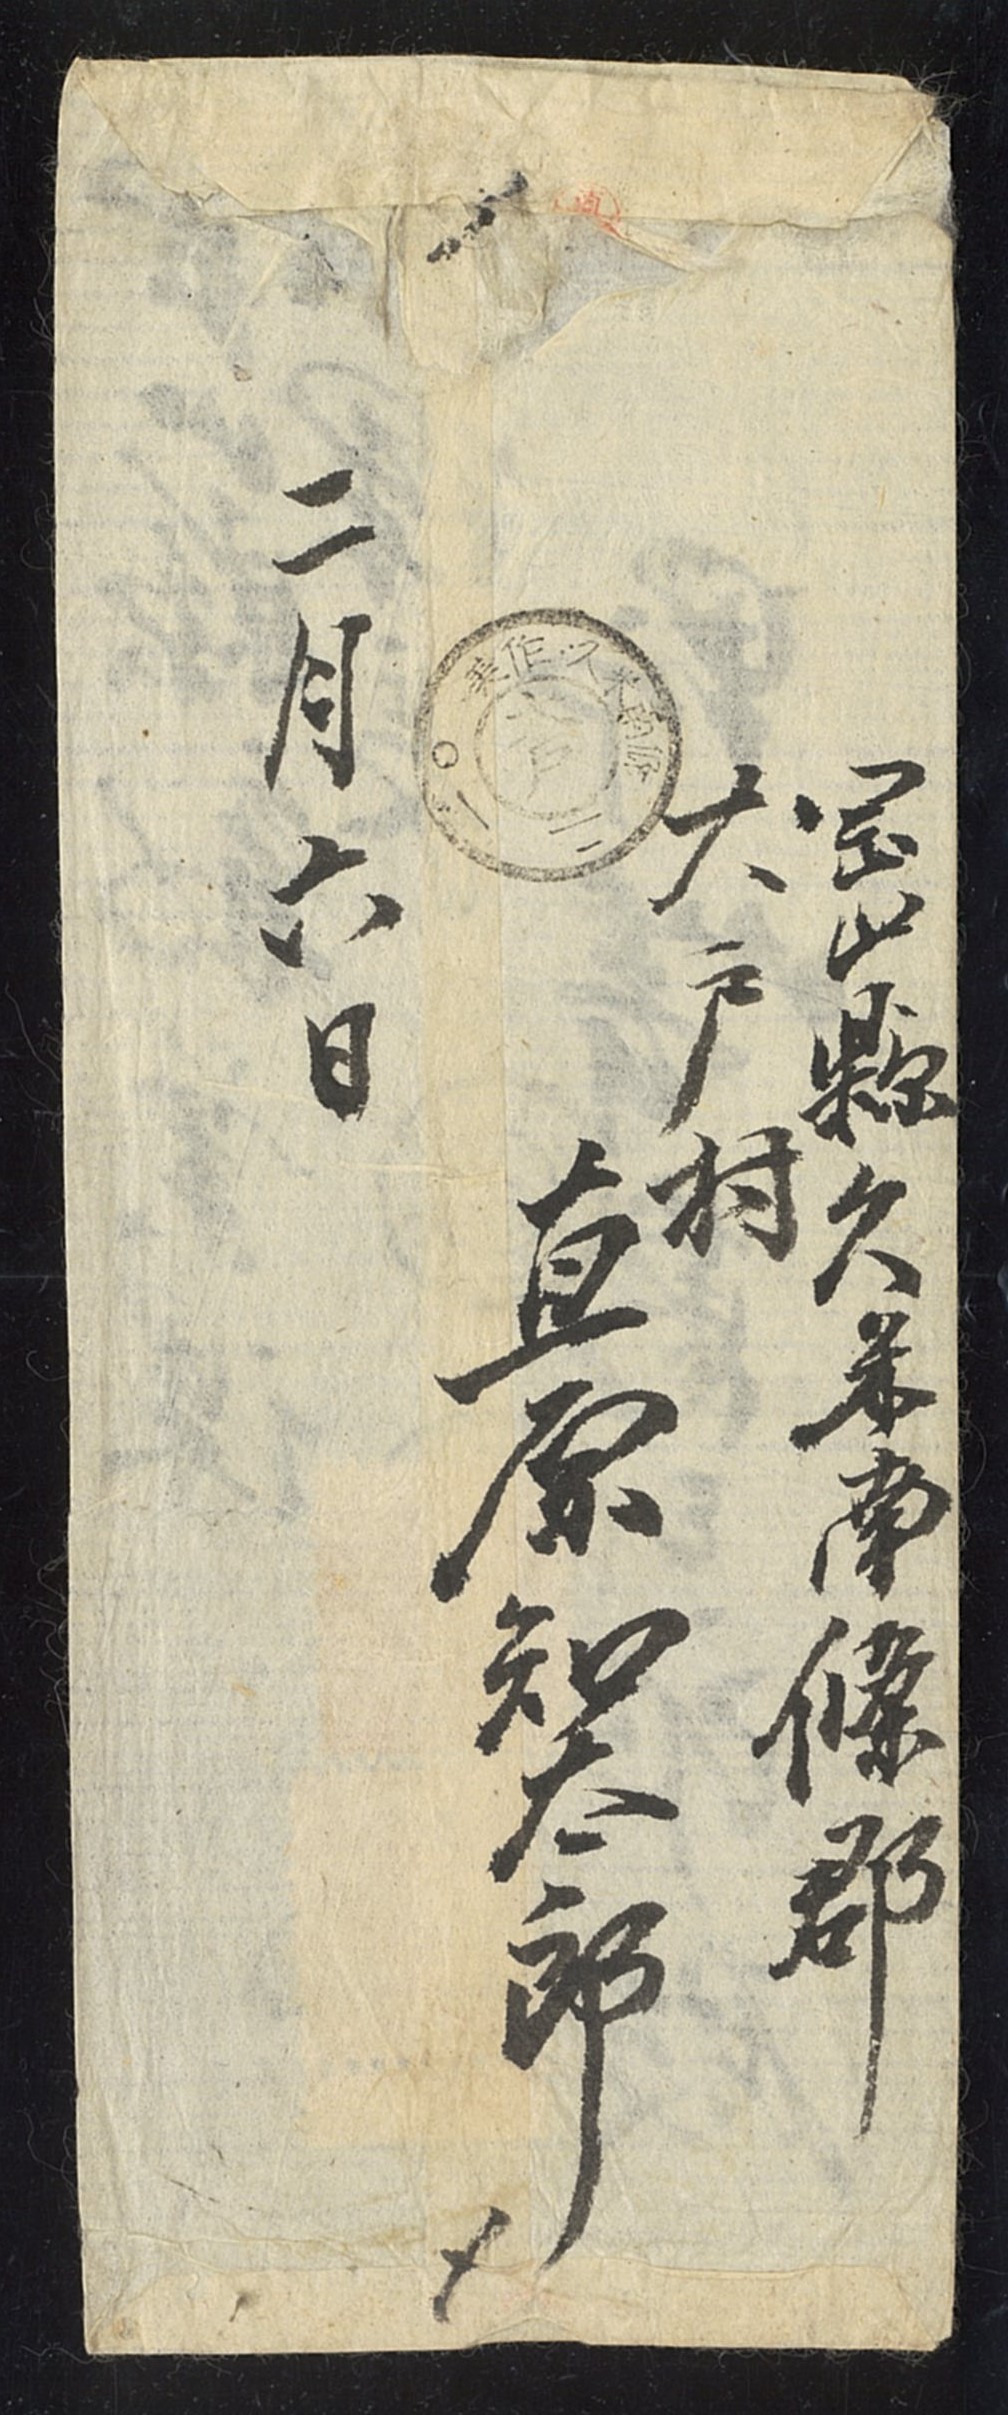 岡山縣久米南條郡
大戸村
直原知太郎
二月六日
直
美作久米南条
大戸